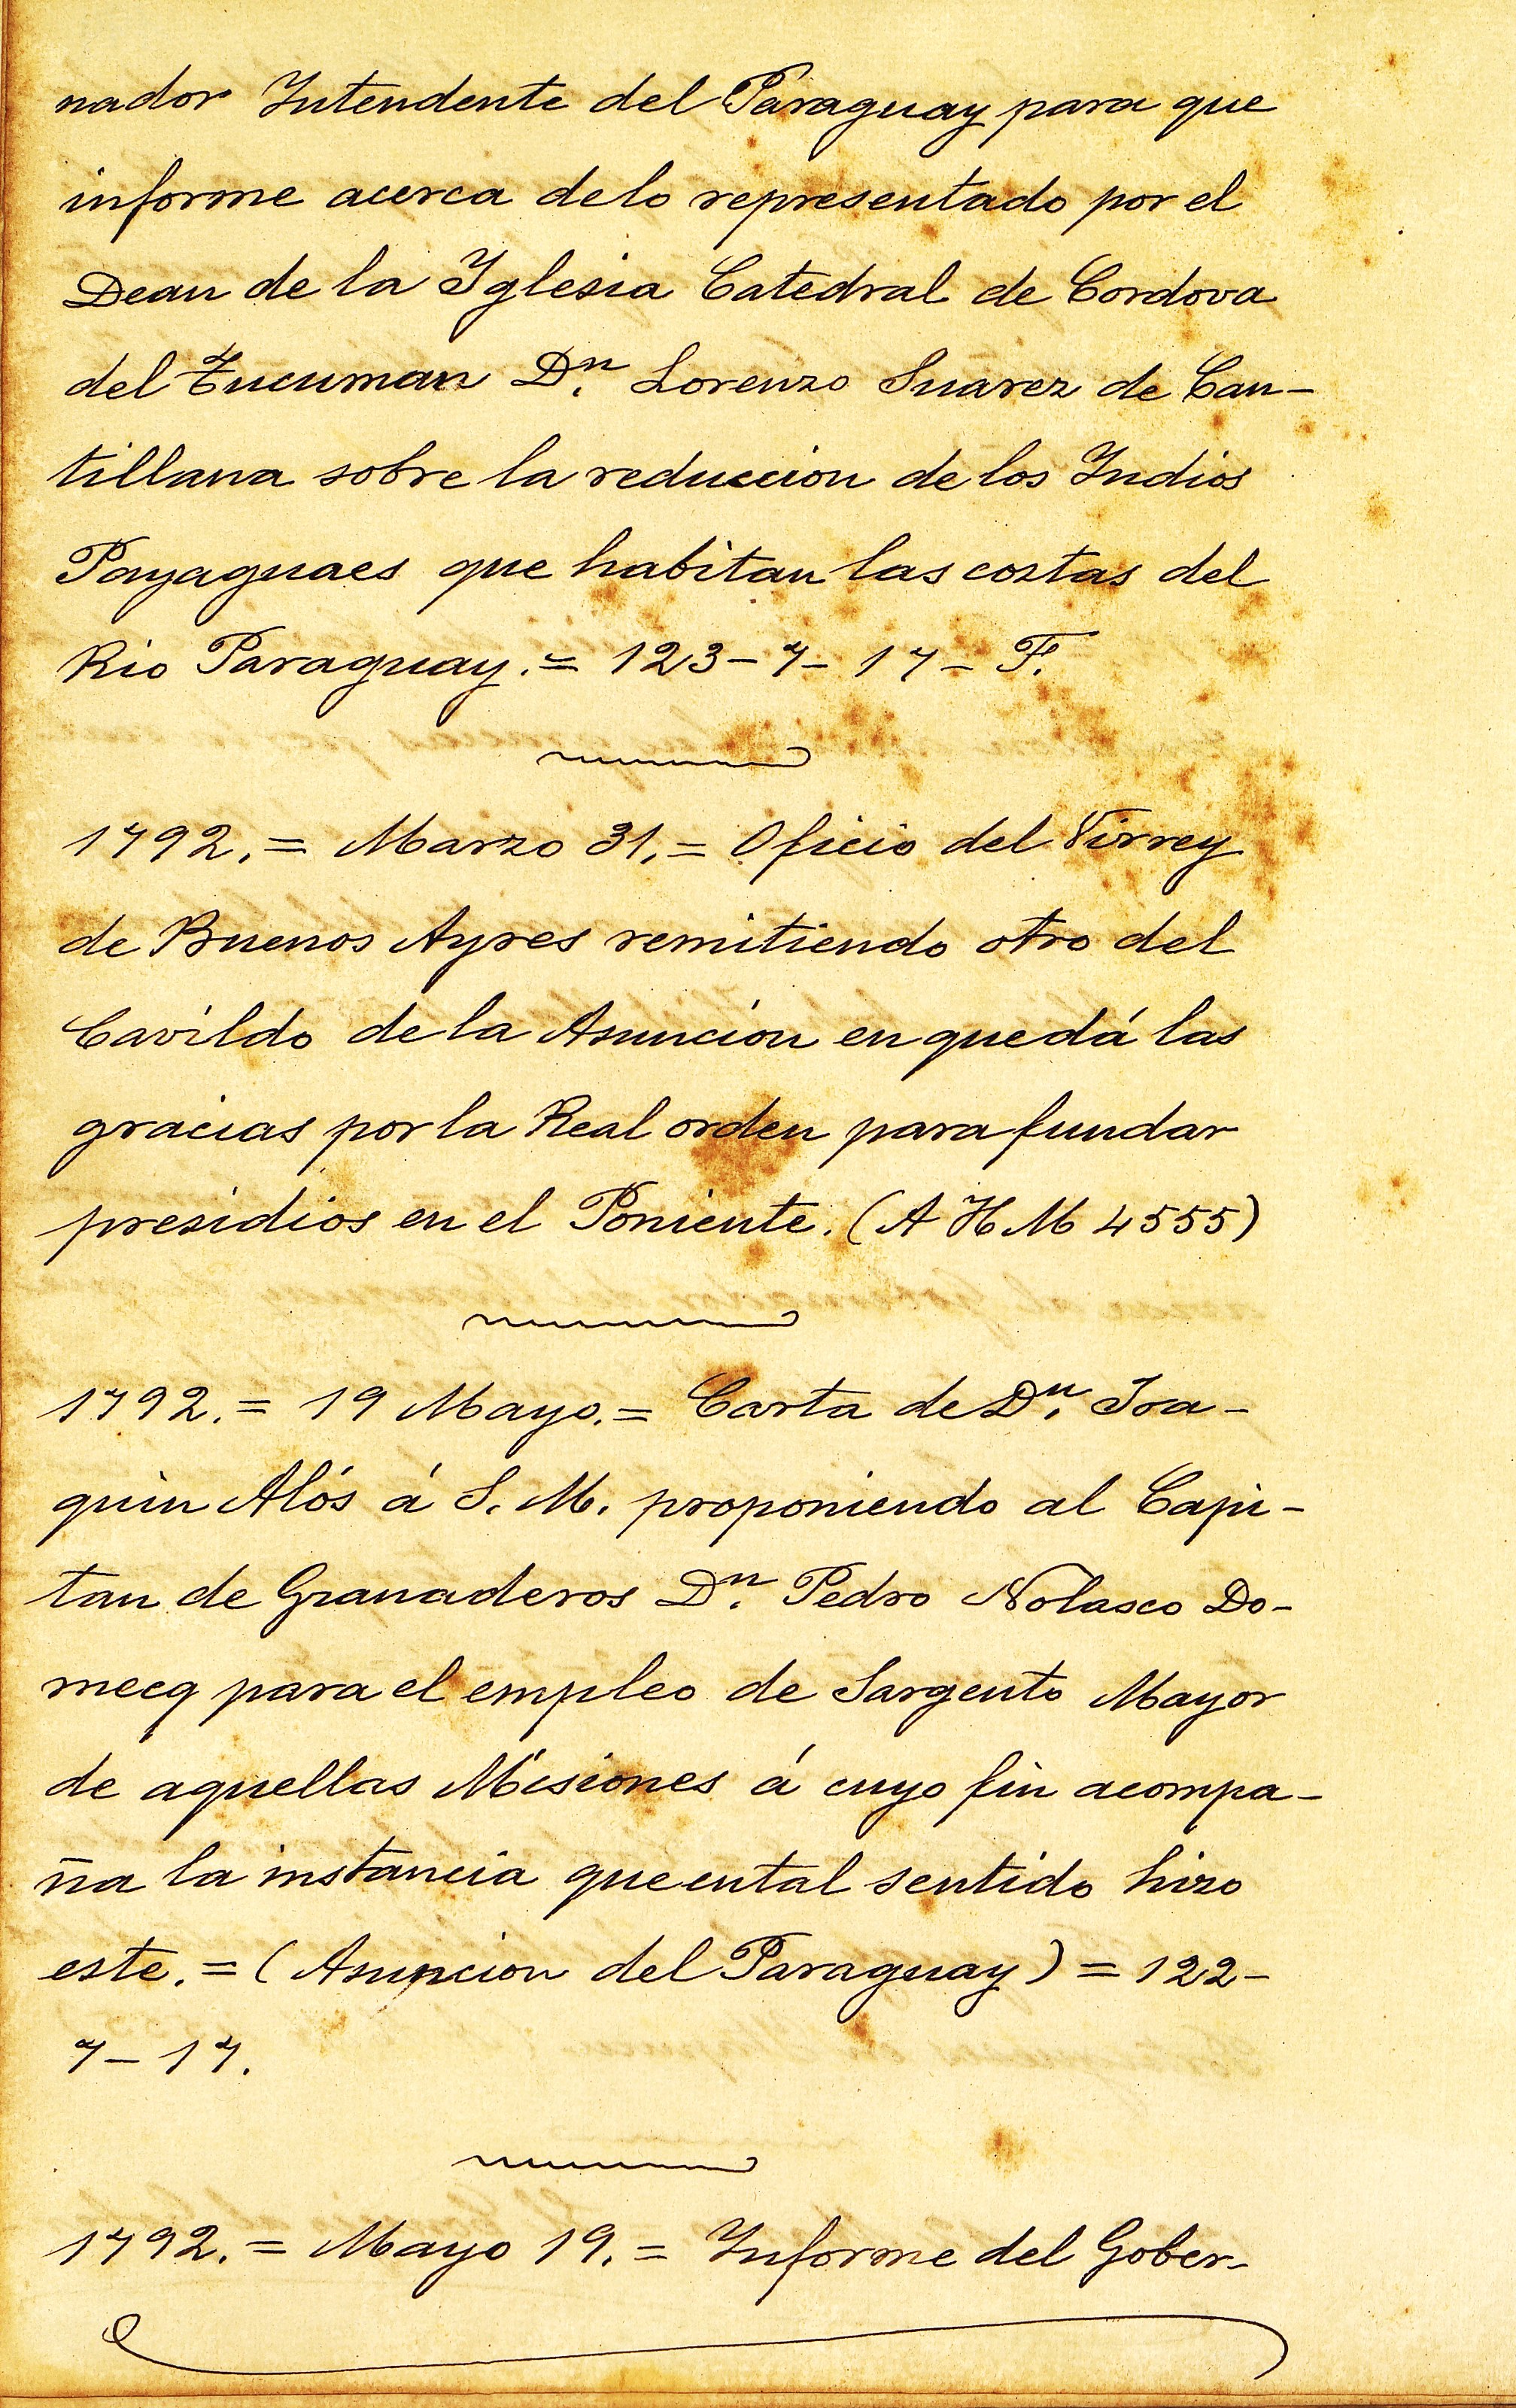 nador Intendente del Paraguay para que
informe acerca de lo representado por el
Dean de la Iglesia Catedral de Cordova
del Tucuman Dn. Lorenzo Suarez de Can-
tillana sobre la reduccion de los Indios
Payaguaes que habitan las costas del
Rio Paraguay. = 123-7-17- F.
1792. = Marzo 31. = Oficio del Virrey
de Buenos Ayres remitiendo otro del
Cavildo de la Asuncion en que dá las
gracias por la Real orden para fundar
presidios en el Poniente. (A H M 4555)
1792. = 19 Mayo. = Carta de Dn. Joa-
quin Alós á S. M. proponiendo al Capi-
tan de Granaderos Dn. Pedro Nolasco Do-
mecq para el empleo de Sargento Mayor
de aquellas Misiones á cuyo fin acompa-
ña la instancia que en tal sentido hizo
este. = (Asuncion del Paraguay) = 122-
7-17.
1792. = Mayo 19. = Informe del Gober-